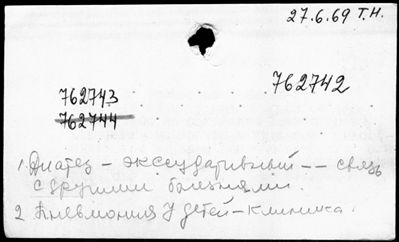 27.6.69 Т.Н.
762742
762743
762744
1. Диатез - экссудативный -- связь
с другими болезнями.
2. Пневмония у детей - клиника.